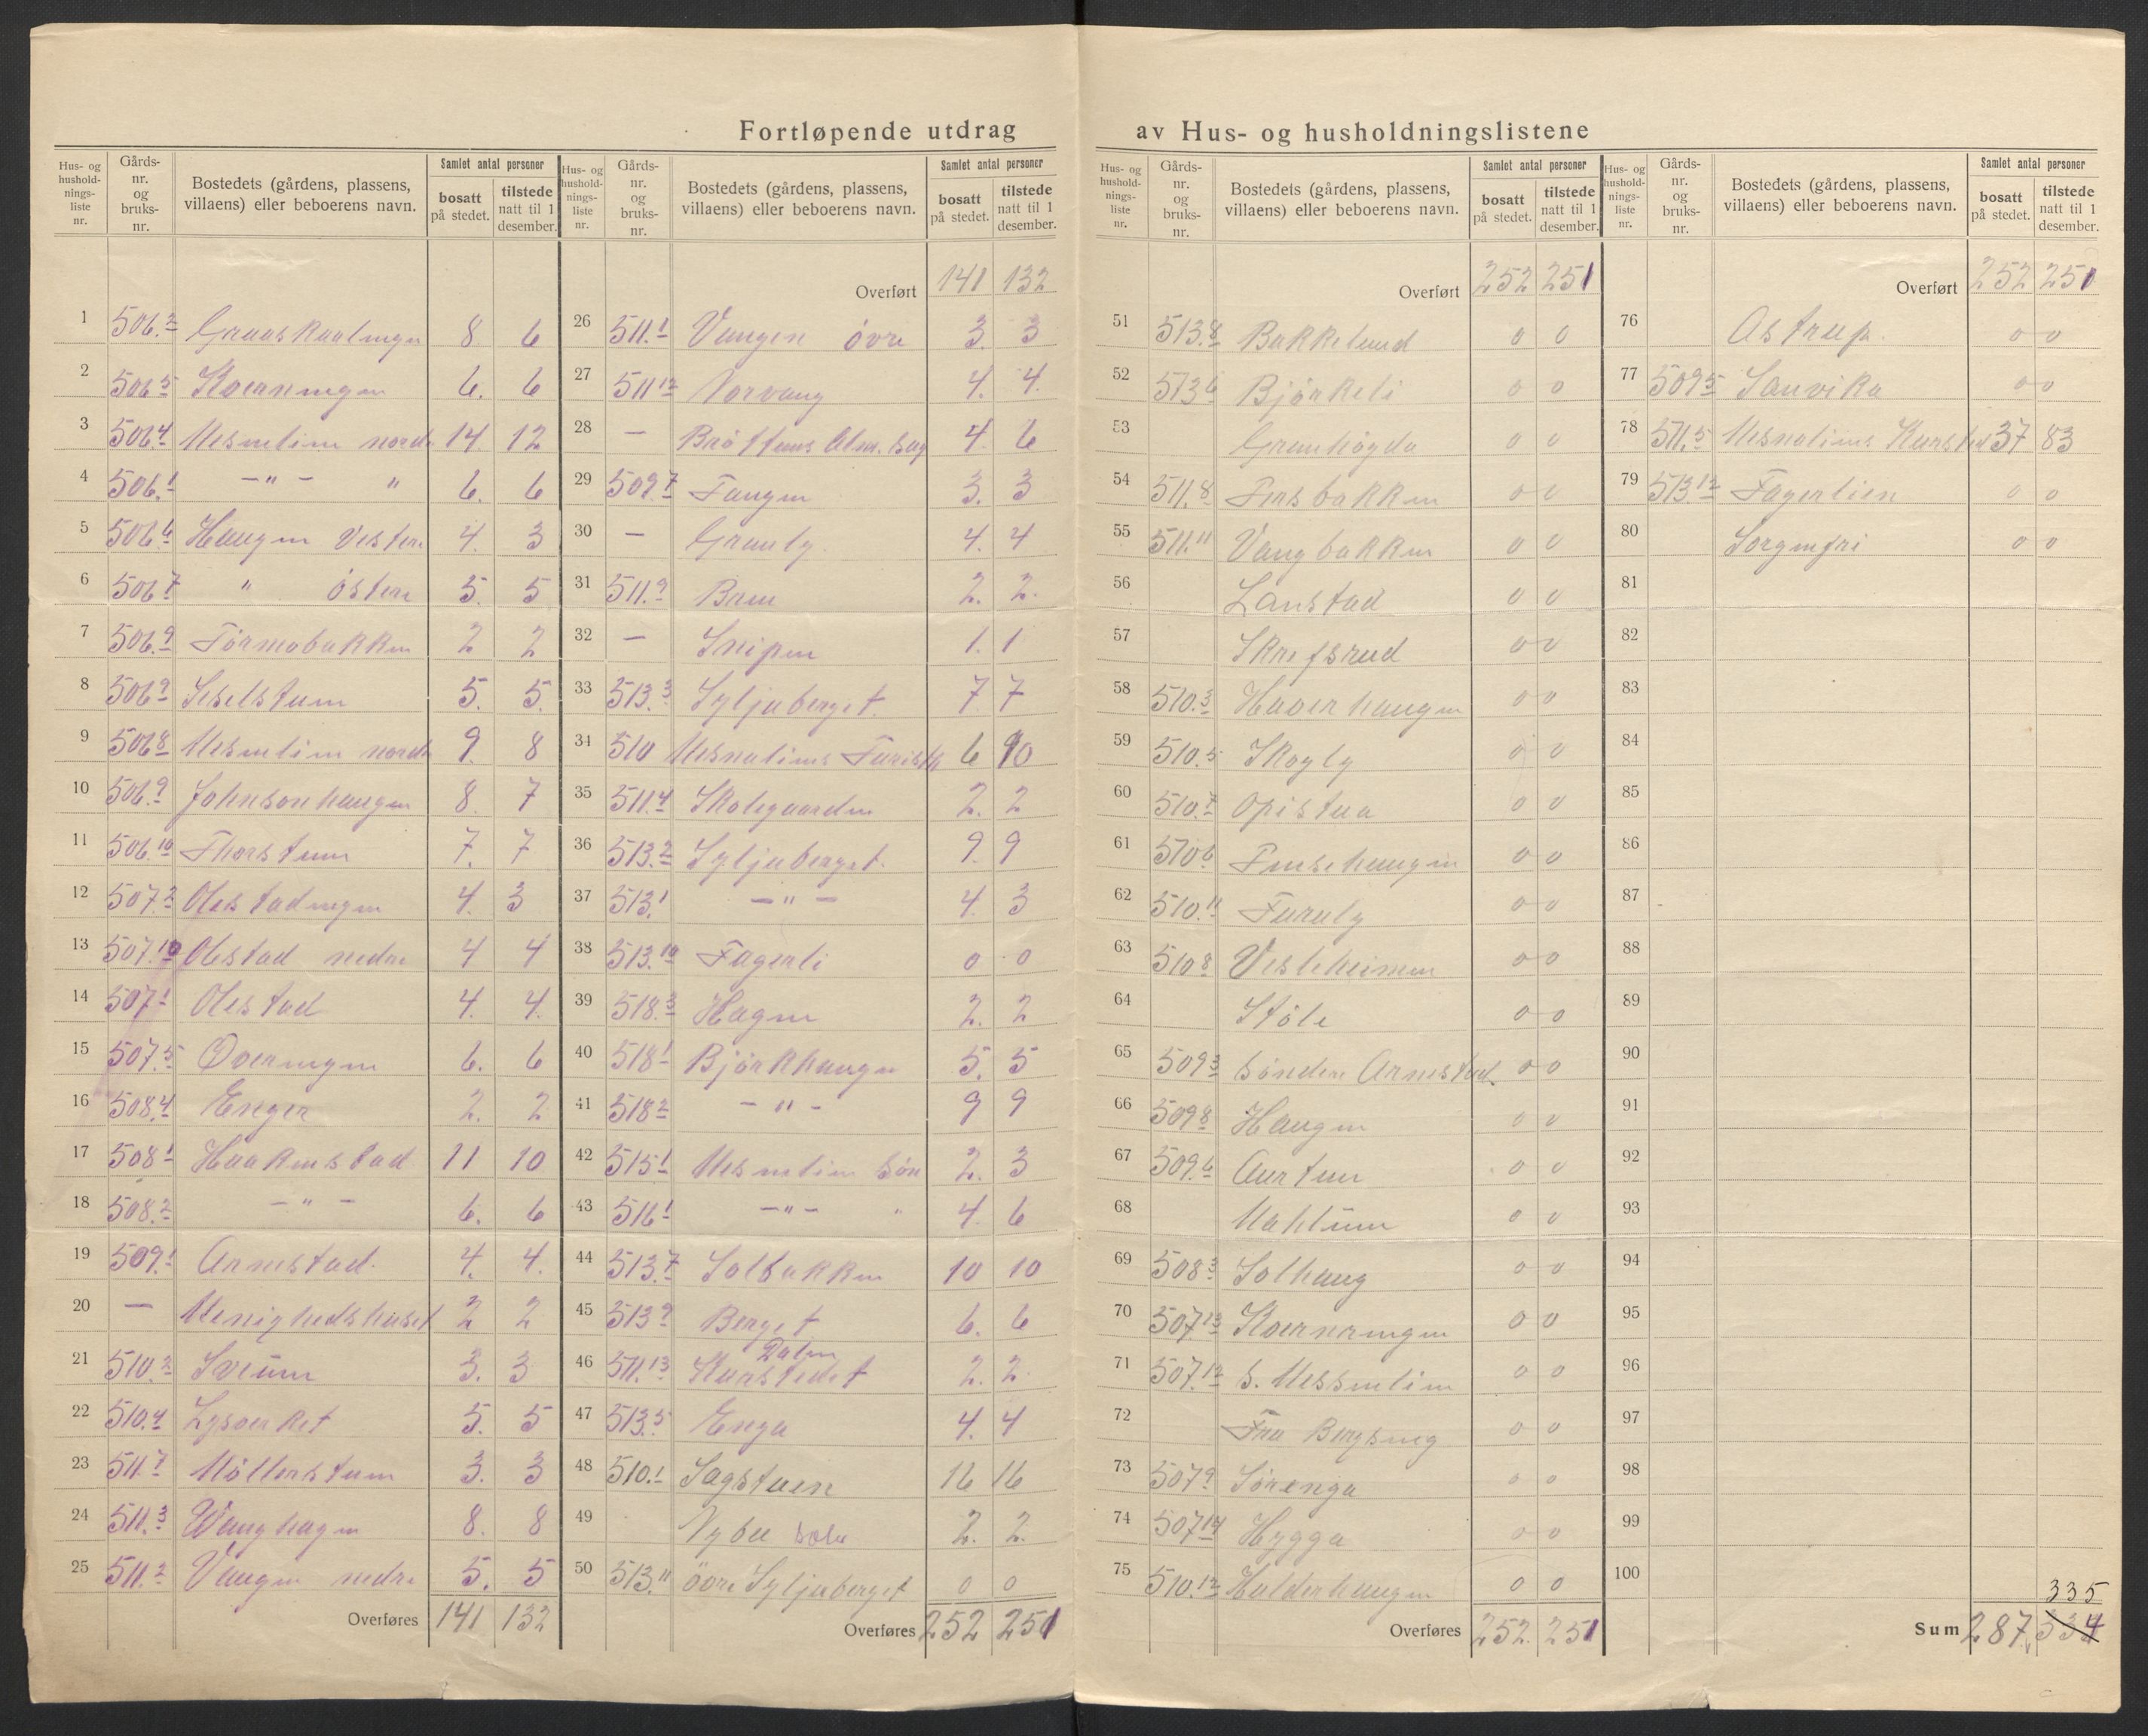 Fortløpende utdrag av Hus- og husholdningslistene
Hus- og hushold-nings-liste nr. | Gårds-nr. og bruks-nr. | Bostedets (gårdens, plassens, villaens) eller beboerens navn. | Samlet antal personer | bosatt på stedet. | tilstede natt til 1 desember.
1 506.2 8 6
2 506 5 6. 6
3 506 4 Mesnalien nordr 14 12
4 506.1 —"— " 6. 6
5 506 6 Haugen Vestere 4. 3
6 506 7 " östere 5. 5
7 506.9 Tørmobakken 2 2
8 506 9 Selstuen 5. 5.
9 506 8 Mesnalien nordr 9. 8
10 506.9 Johnsonhaugen 8. 7
11 506.10 Thorstuen 7. 7
12 507.2 Olestadengen 4. 3
13 507.10 Olestad nedre 4 4
14 507 1 Olestad 4. 4.
15 507.5 Overengen 6. 6
16 508.4 Enger 2. 2
17 508 1 Haakenstad 11 10
18 508.2 —"— 6. 6
19 509.1 Arnestad. 4. 4.
20 — Menighedshuset 2 2
21 510.2 Sveum 3. 3
22 510.4 5. 5
23 511.7 Möllerstuen 3. 3
24 511.3 Wanghagen 8. 8
25 511.2 Vangen nedre 5. 5
Overføres 141 132
Hus- og hushold-nings-liste nr. | Gårds-nr. og bruks-nr. | Bostedets (gårdens, plassens, villaens) eller beboerens navn. | Samlet antal personer | bosatt på stedet. | tilstede natt til 1 desember.
Overført 141 132
26 511.1 Vangen övre 3. 3
27 511 12 Norvang 4. 4.
28 — Bröttums Alm. Sag 4. 6
29 509.7 Taugen 3. 3
30 — Granly 4. 4
31 511.9 Bruen 2. 2.
32 — Snipen 1. 1
33 513.3 Syljuberget 7. 7
34 510 Mesnaliens Turisth 6 10
35 511.4 Skolegaarden 2. 2
36 513.2 Syljuberget. 9. 9
37 513.1 —"— 4. 3
38 513.10 Fagerli 0 0
39 518.3 Hagen 2. 2
40 518 1 Björkhaugen 5. 5
41 518 2 —"— 9 9
42 515 1 Mesnalien Søn 2. 3
43 516 1 —"— " 4. 6
44 513.7 Solbakken 10 10
45 513 9 Berget 6. 6
46 511.13 Kurstedet Dalen 2. 2.
47 513.5 Enga 4. 4
48 510.1 Sagstuen 16 16
49 Nybu 2. 2.
50 513.11 övre Syljuberget 0 0
Overføres 252 251
Hus- og hushold-nings-liste nr. | Gårds-nr. og bruks-nr. | Bostedets (gårdens, plassens, villaens) eller beboerens navn. | Samlet antal personer | bosatt på stedet. | tilstede natt til 1 desember.
Overført 252 251
51 513.8 Bakkelund 0 0
52 513 6 Bjørkeli 0 0
53 Granhøgda 0 0
54 511.8 Fossbakken 0 0
55 511.11 Vangbakken 0 0
56 Lanstad 0 0
57 Skrefsrud 0 0
58 510.3 Haverhaugen 0 0
59 510.5 Skogly 0 0
60 510.7 Opistua 0 0
61 510 6 0 0
62 510.11 Furuly 0 0
63 510 8 Vesleheimen 0 0
64 Støle 0 0
65 509 3 Søndre Arnestad. 0 0
66 509 8 Haugen 0 0
67 509.6 Aurtun 0 0
68 Mahlum 0 0
69 508 3 Solhaug 0 0
70 507 13 0 0
71 507.12 S. Messenlien 0 0
72 Fru Bergseng 0 0
73 507 9 Sørenga 0 0
74 507 14 Hygga 0 0
75 510.12 Halderhaugen 0 0
Overføres 252. 251
Hus- og hushold-nings-liste nr. | Gårds-nr. og bruks-nr. | Bostedets (gårdens, plassens, villaens) eller beboerens navn. | Samlet antal personer | bosatt på stedet. | tilstede natt til 1 desember.
Overført 252 251
76 Astrup. 0 0
77 509 5 Sanvika 0 0
78 511.5 Mesnaliens Kursted 37 83
79 513.12 Fagerlien 0 0
80 Sorgenfri 0 0
81
82
83
84
85
86
87
88
89
90
91
92
93
94
95
96
97
98
99
100
335
Sum 287 334